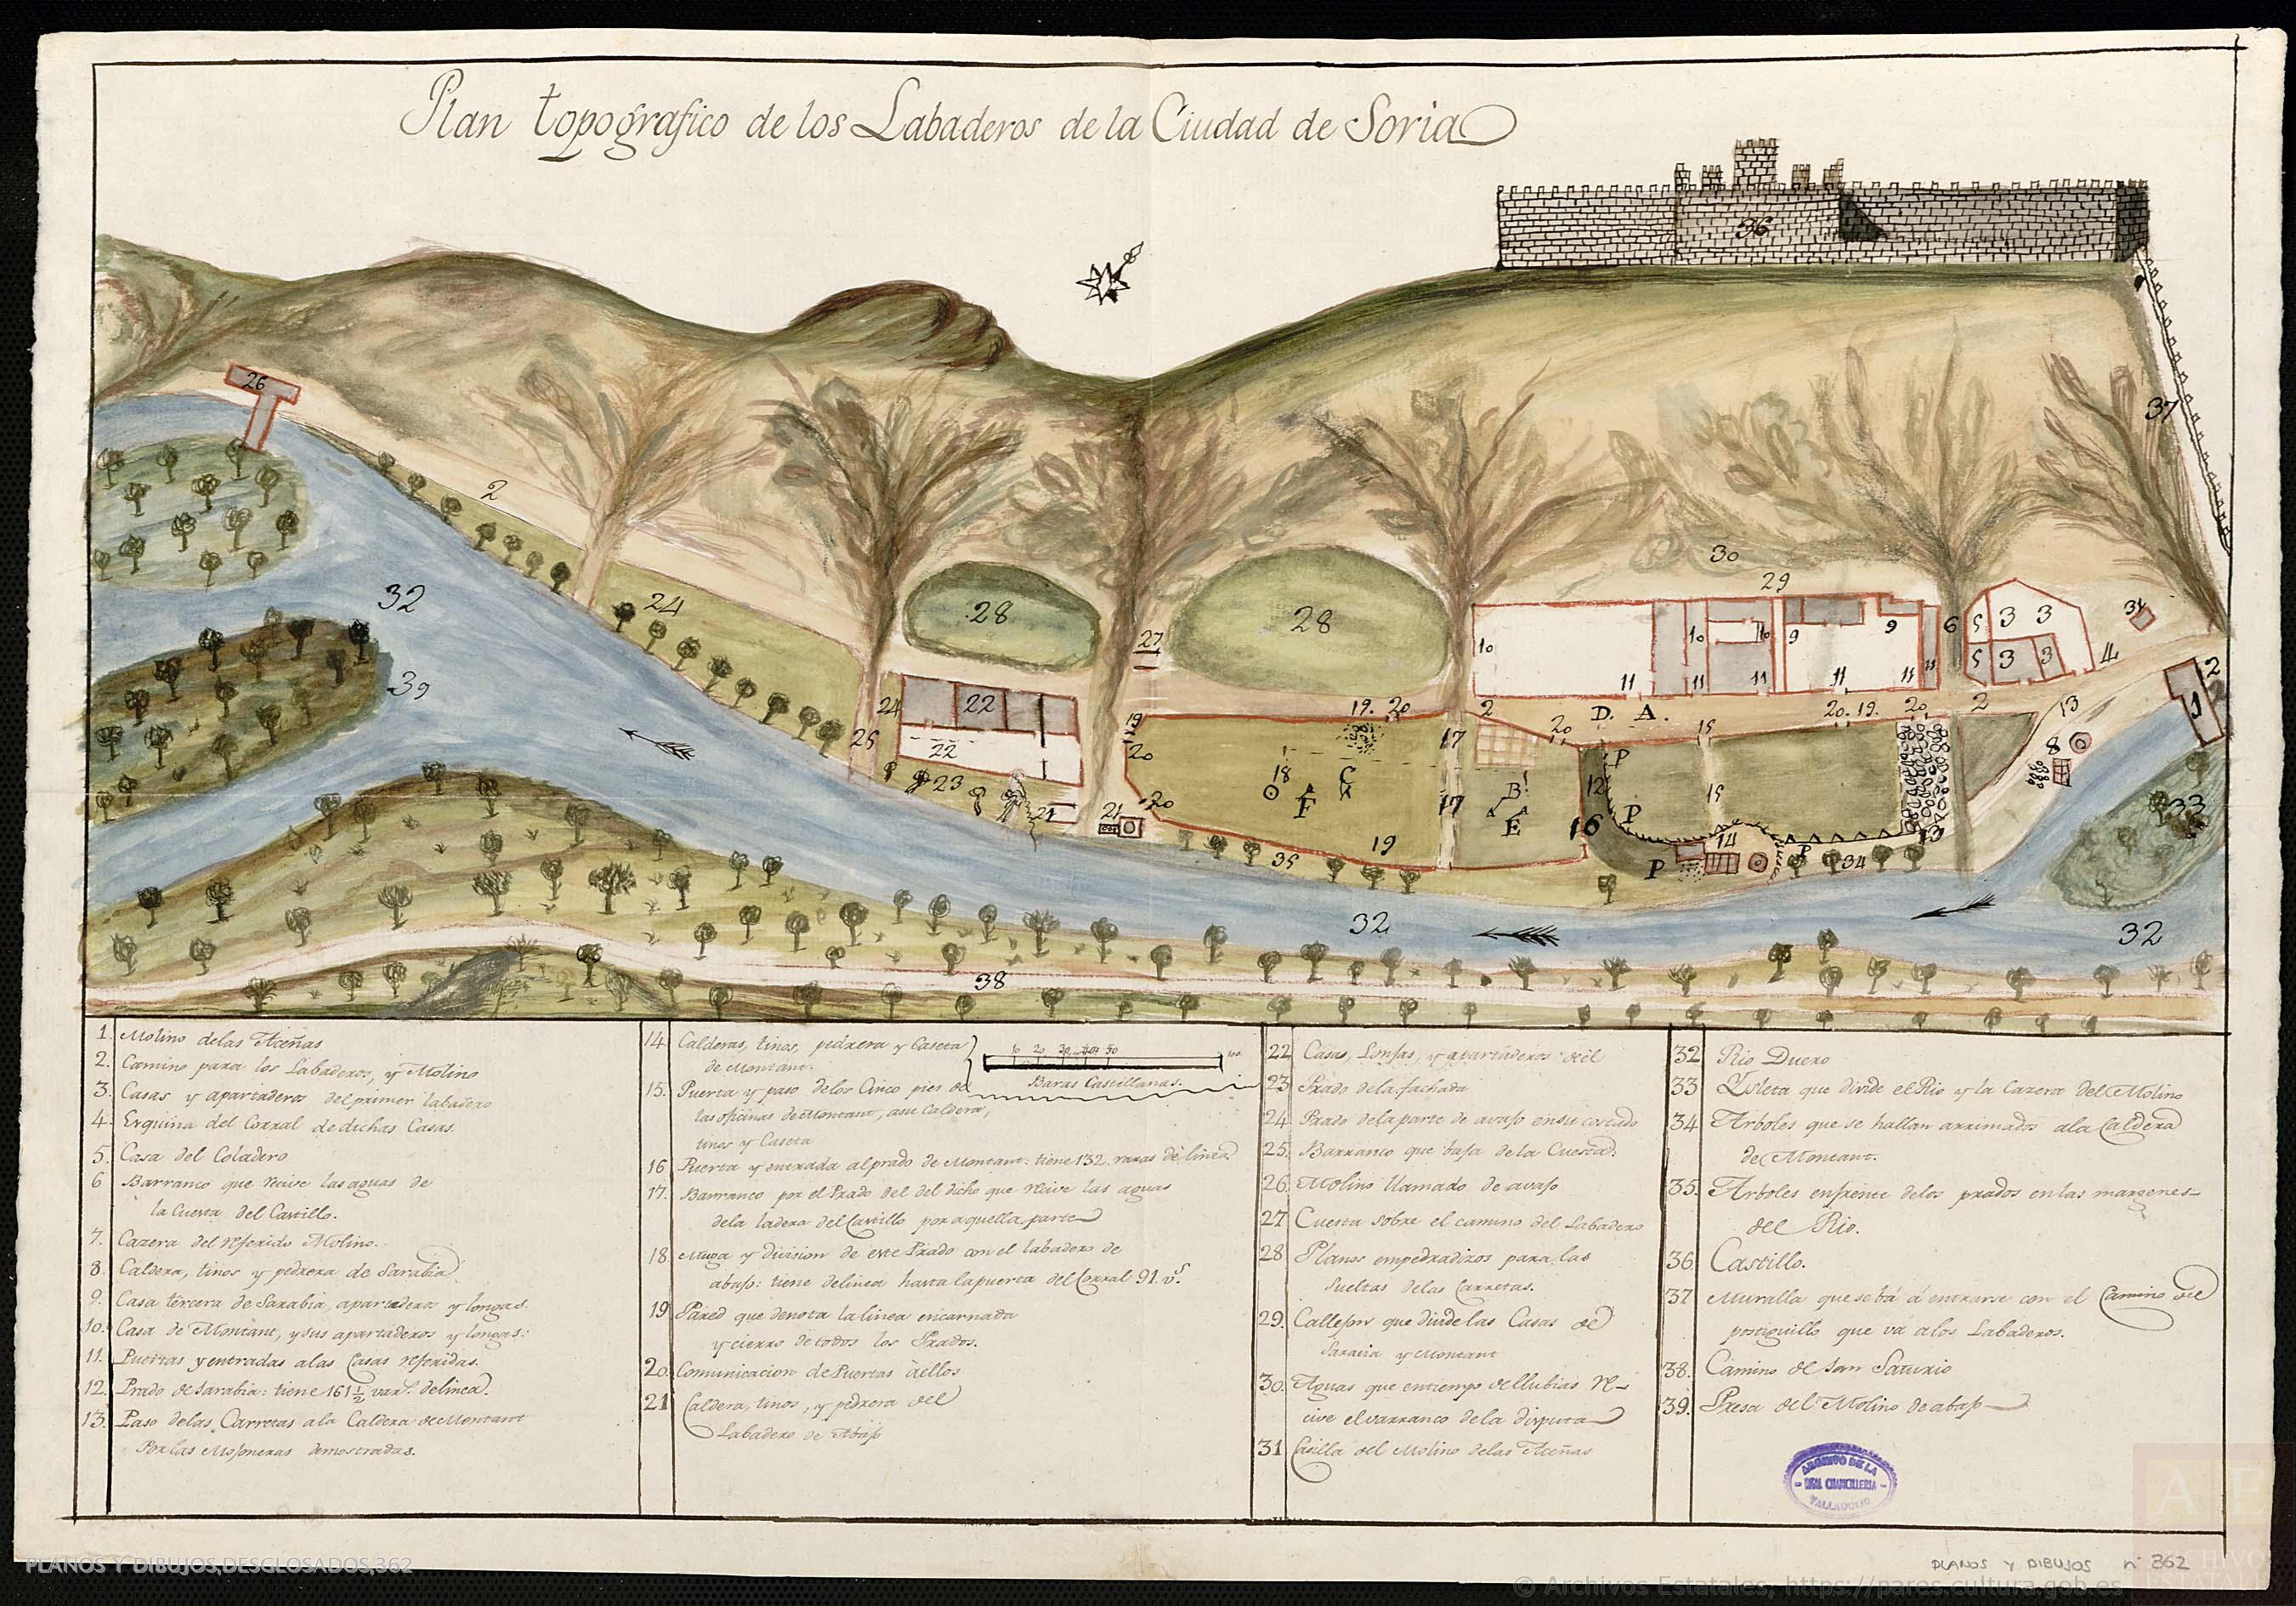 Plan topografico de los Labaderos de la Ciudad de Soria
36
26
37
2
30
32
24
28
28
29
27
10
10
10
9
9
6
5
3
3
31
4
5
3
3
11
11
11
11
11
11
2
1
39
24
22
22
25
23
19
20
19. 20
2
20
D. A.
15
20. 19. 20
2
13
8
17
P
18
C
12
15
B
F
17
E
16
P
13
33
20
21
21
19
35
14
P
P
34
32
32
38
1. Molino de las Aceñas
2. Camino para los Labaderos, y Molino
3. Casas y apartaderos del primer labadero
4. Esquina del Corral de dichas Casas.
5. Casa del Coladero
6 Barranco que recive las aguas de
la Cuesta del Castillo.
7. Cazera del referido Molino.
8. Caldera, tinos y pedrera de Sarabia
9. Casa tercera de Sarabia, apartaderos y longas.
10. Casa de Montant, y sus apartaderos y longas:
11. Puertas y entradas a las Casas referidas.
12. Prado de Sarabia: tiene 161 1/2 var.s de linea.
13. Paso de las Carretas a la Caldera de Montant
Por las Mojoneras demostradas.
14. Calderas, tinos, pedrera y Caseta
de Montant.
10 20 30 40 50 100
Baras Castellanas.
15. Puerta y paso de los Cinco pies de
las oficinas de Montant, a su Caldera,
tinos y Caseta
16 Puerta y entrada al prado de Montant: tiene 132. varas de linea
17. Barranco por el Prado del del dicho que recive las aguas
de la ladera del Castillo por aquella parte
18. Muga y division de este Prado con el labadero de
abajo: tiene de linea hasta la puerta del Corral 91. v.s
19 Pared que denota la linea encarnada
y cierro de todos los Prados.
20. Comunicacion de Puertas à ellos
21 Caldera, tinos, y pedrera del
Labadero de Abajo
22 Casas, Lonjas, y apartaderos del
23 Prado de la fachada
24 Prado de la parte de avajo en su costado
25. Barranco que baja de la Cuesta.
26. Molino llamado de avajo
27 Cuesta sobre el camino del Labadero
28 Planos empedradizos para las
Sueltas de las Carretas.
29. Callejon que divide las Casas de
Saravia y Montant
30. Aguas que en tiempo de llubias re-
cive el varranco de la disputa
31 Casilla del Molino de las Aceñas
32 Rio Duero
33 Ysleta que divide el Rio y la Cazera del Molino
34 Arboles que se hallan arrimados a la Caldera
de Montant.
35. Arboles enfrente de los prados en las margenes
del Rio.
36 Castillo.
37 Muralla que se bá á entrarse con el Camino del
postiguillo que vá a los Labaderos.
38. Camino de San Saturio
39. Presa del Molino de abajo
ARCHIVO DE LA
REAL CHANCILLERIA
VALLADOLID
PLANOS Y DIBUJOS,DESGLOSADOS,362
PLANOS Y DIBUJOS nº 362
© Archivos Estatales, https://pares.cultura.gob.es
A E
ARCHIVOS
ESTATALES